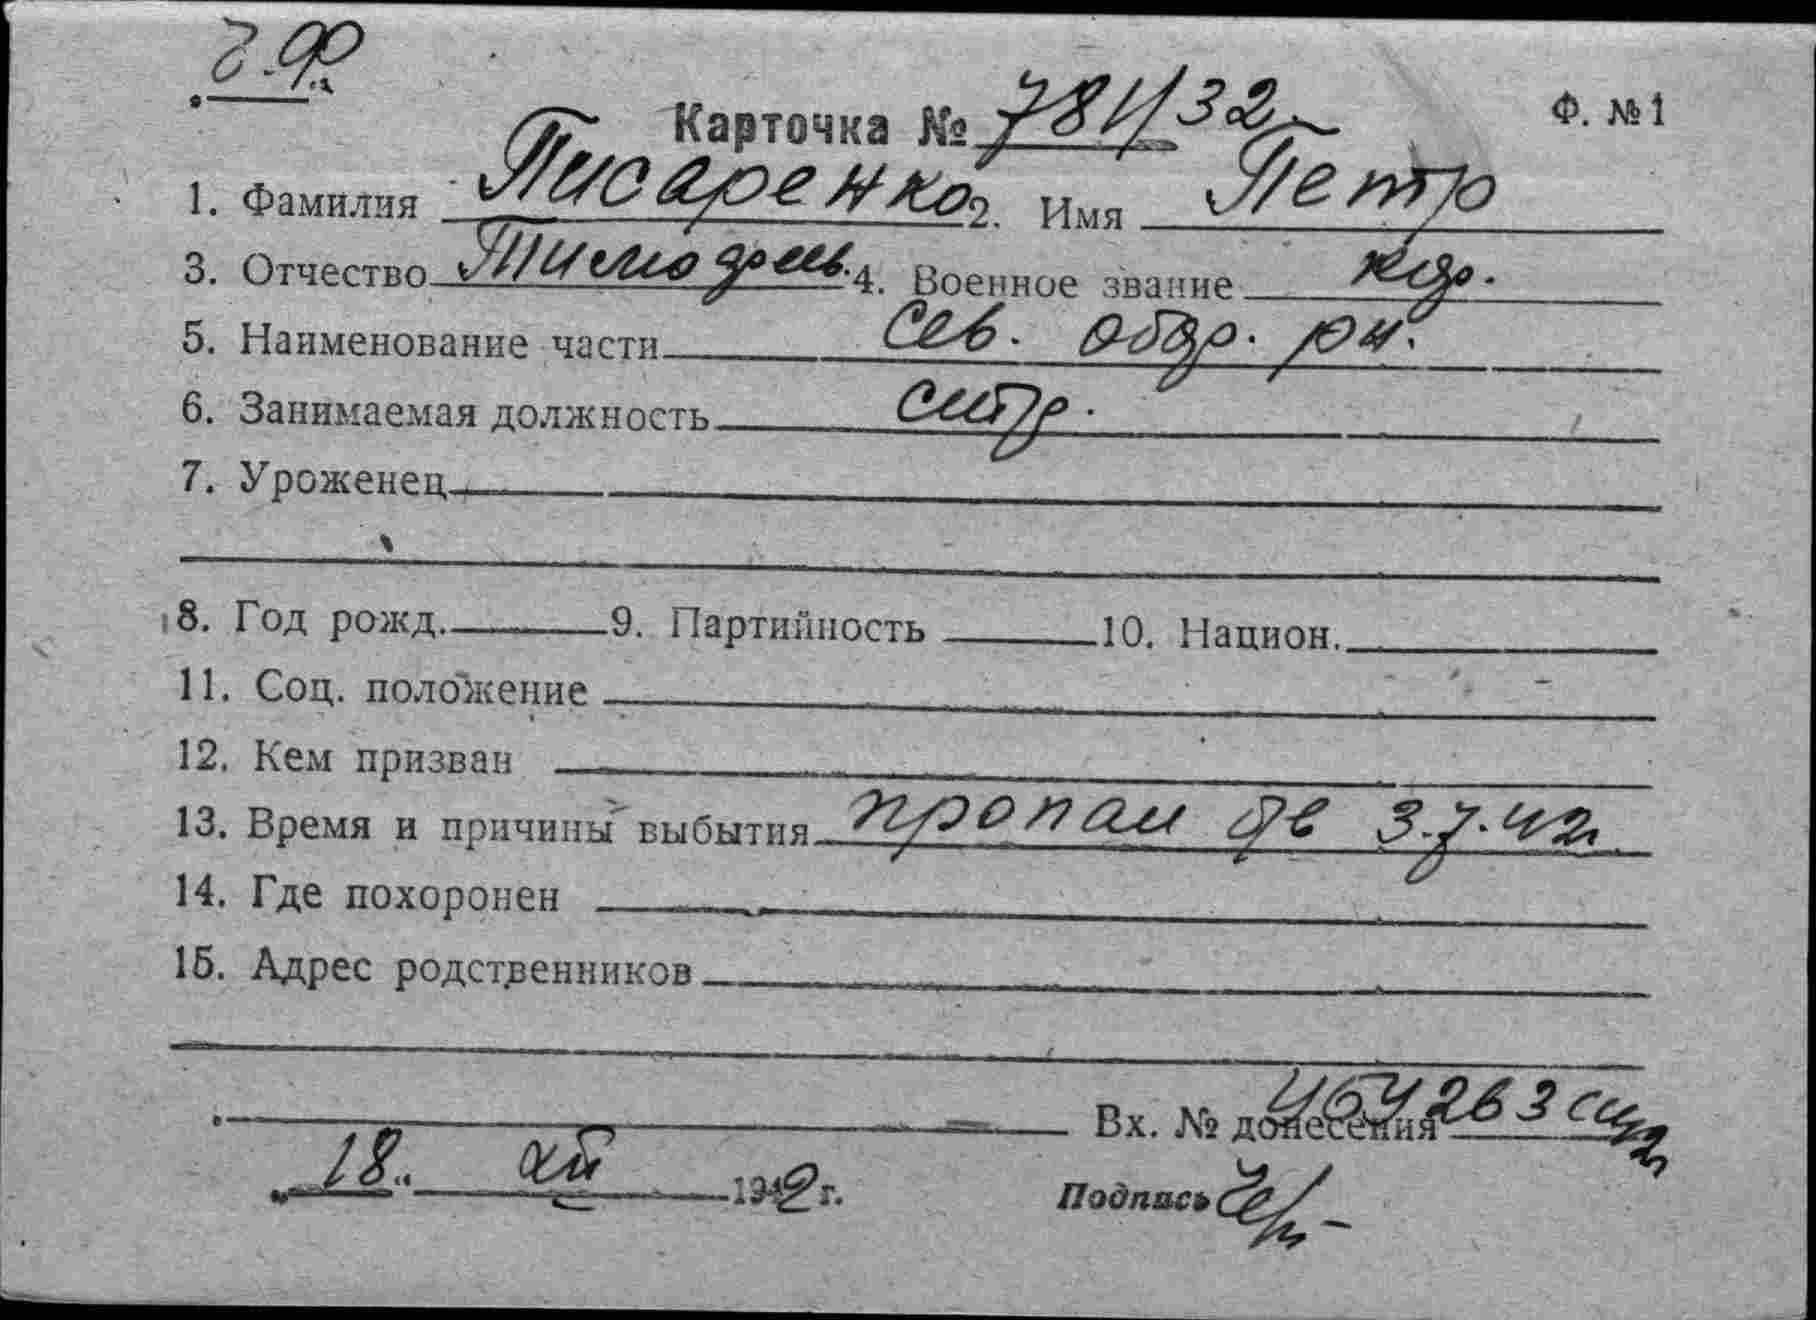 Карточка № 781/32 Ф. № 1
1. Фамилия Писаренко 2. Имя Петр
3. Отчество Тимофеев. 4. Военное звание кр.
5. Наименование части Сев. обор. рн.
6. Занимаемая должность
7. Уроженец
8. Год рожд. 9. Партийность 10. Национ.
11. Соц. положение
12. Кем призван
13. Время и причины выбытия пропал 3.7.42
14. Где похоронен
15. Адрес родственников
Вх. № донесения
18 XII 1942 г. Подпись